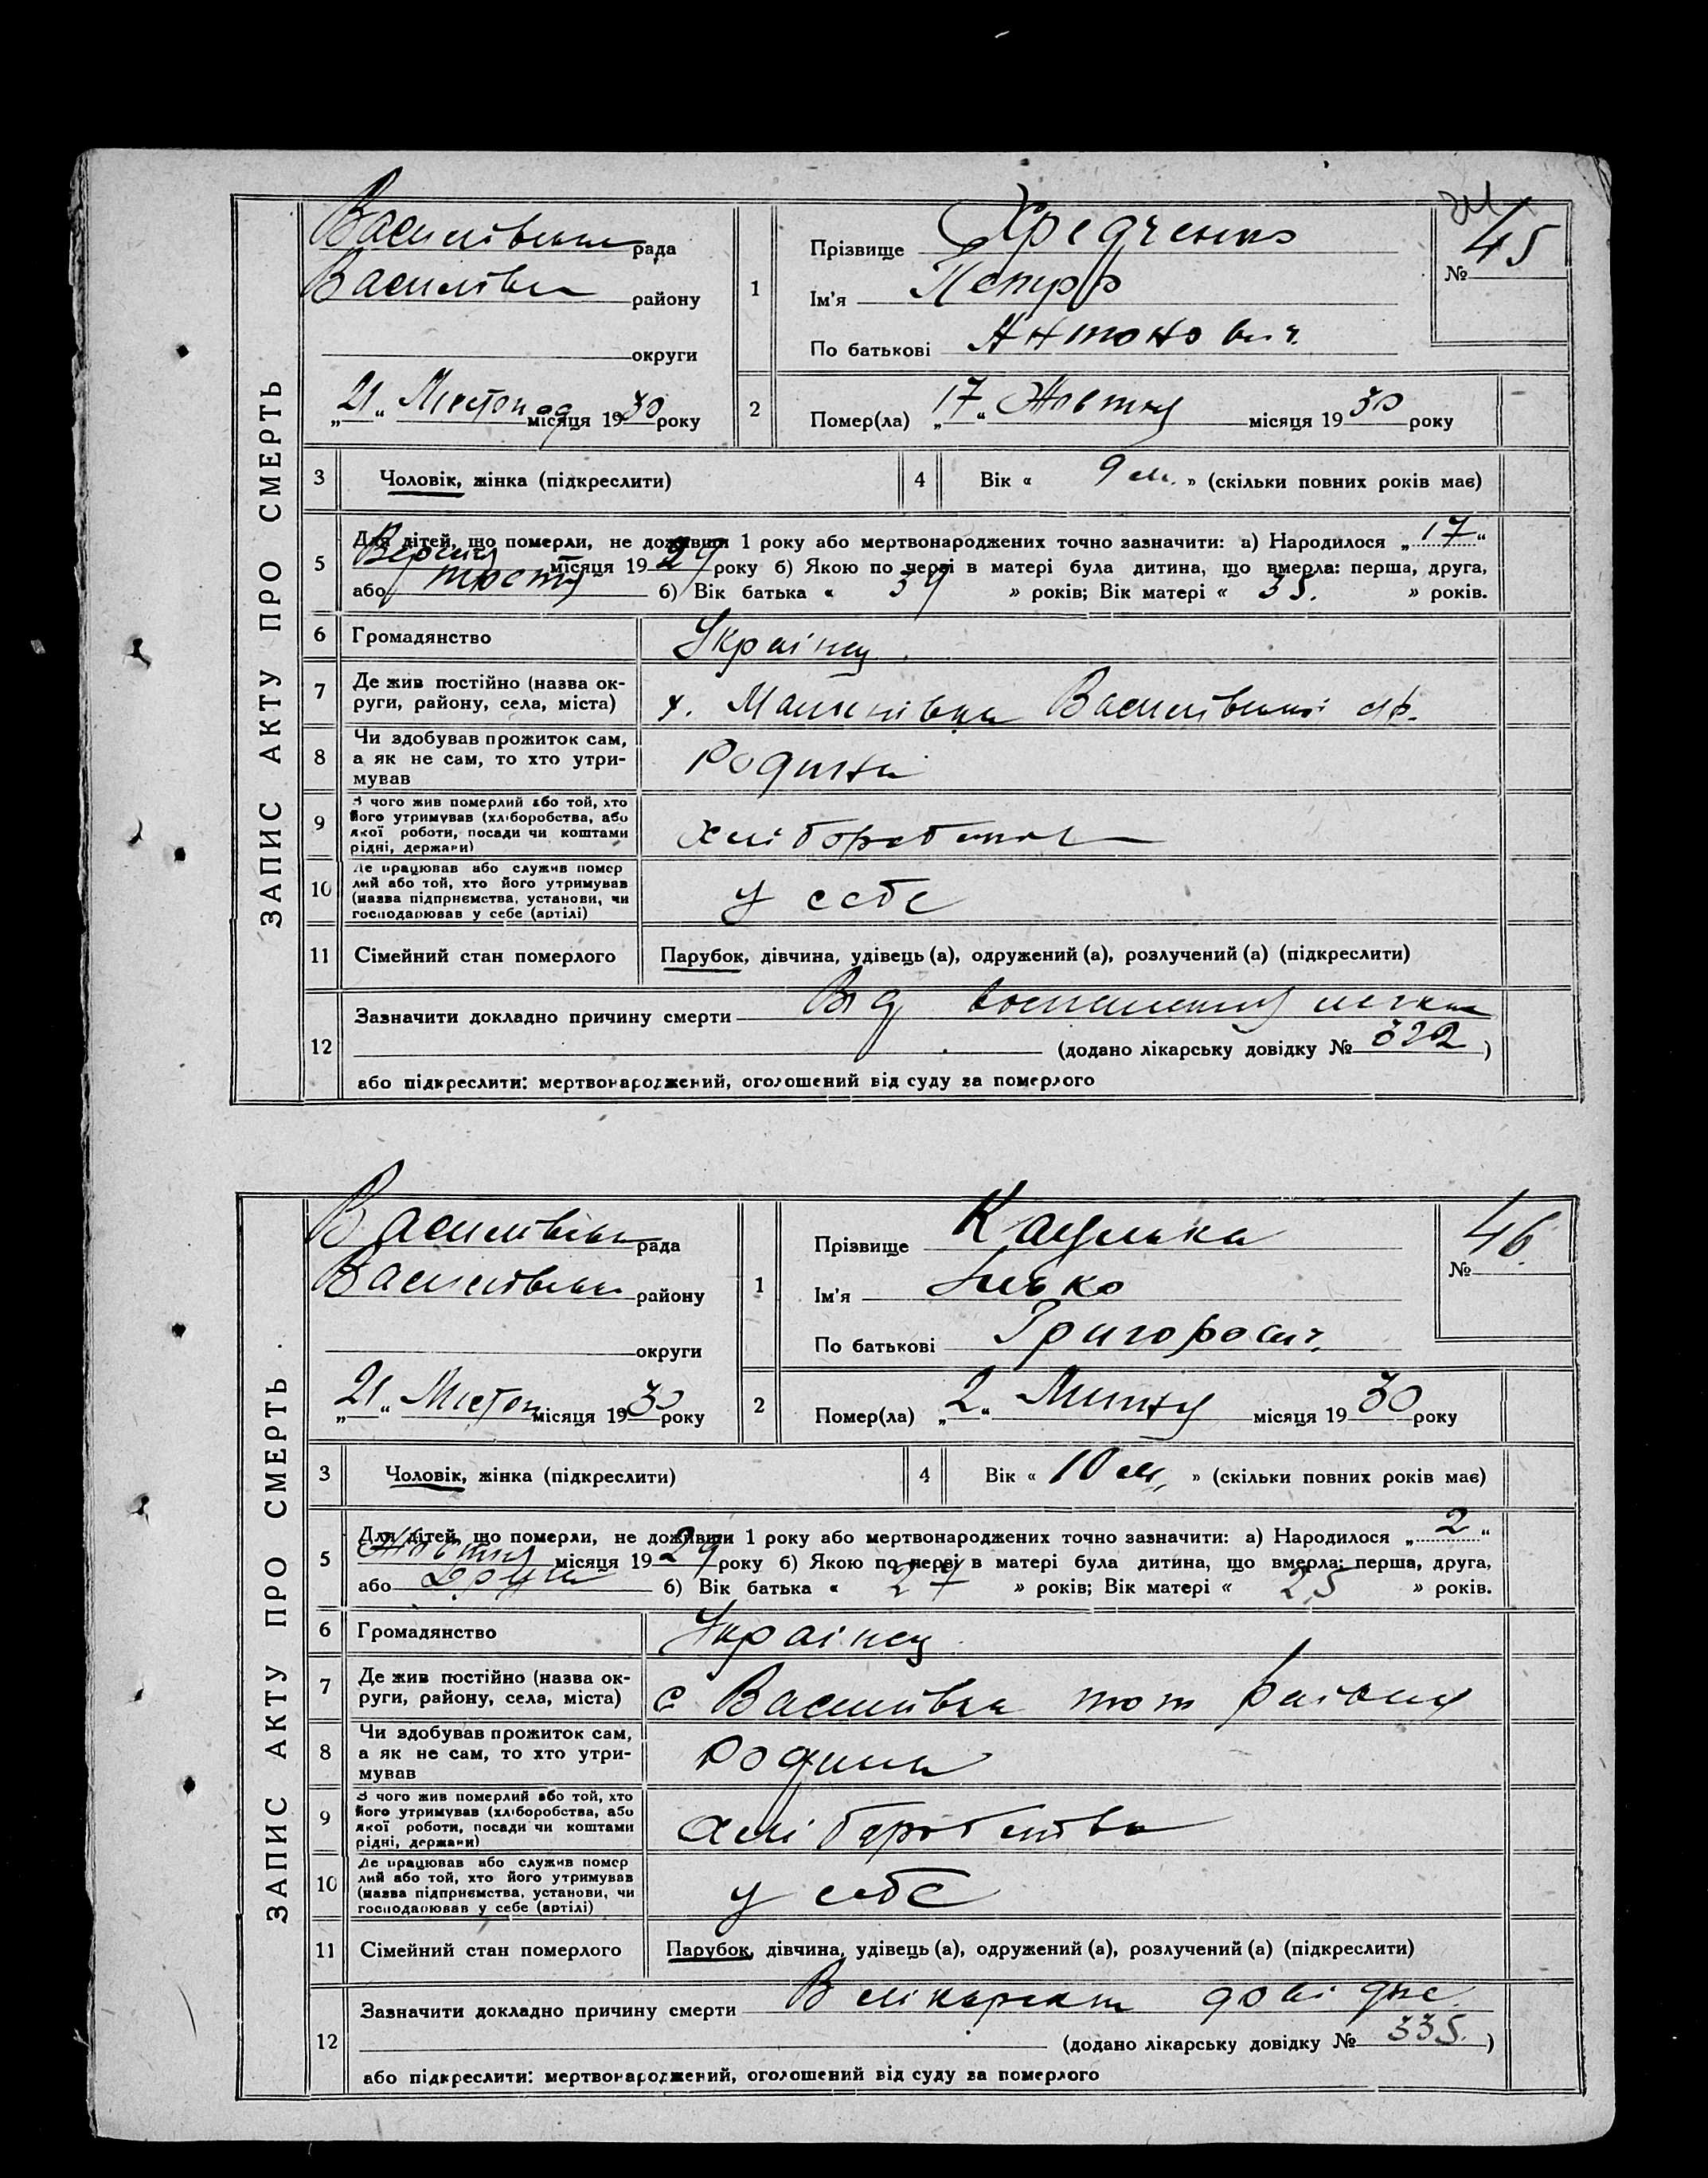 ЗАПИС АКТУ ПРО СМЕРТЬ
Василівська рада
Василівськ району
округи
„21“ Листопад місяця 1930 року
1
Прізвище Хредченко
Ім'я Петро
По батькові Антонович
№ 45
2
Помер(ла) „17“ Жовтня місяця 1930 року
3 Чоловік, жінка (підкреслити)
4 Вік « 9 м. » (скільки повних років має)
5
Для дітей, що померли, не доживши 1 року або мертвонароджених точно зазначити: а) Народилося „17“
місяця 1929 року б) Якою по черзі в матері була дитина, що вмерла: перша, друга,
або шоста б) Вік батька « 39 » років; Вік матері « 35. » років.
6 Громадянство Українец
7 Де жив постійно (назва ок-
руги, району, села, міста)
х. Василівської
8 Чи здобував прожиток сам,
а як не сам, то хто утри-
мував
Родина
9 З чого жив померлий або той, хто
його утримував (хліборобства, або
якої роботи, посади чи коштами
рідні, держави)
хліборобство
10 Де працював або служив помер
лий або той, хто його утримував
(назва підприємства, установи, чи
господарював у себе (артілі)
у себе
11 Сімейний стан померлого Парубок, дівчина, удівець (а), одружений (а), розлучений (а) (підкреслити)
12
Зазначити докладно причину смерти Від воспаления легких
(додано лікарську довідку № 322)
або підкреслити: мертвонароджений, оголошений від суду за померлого
ЗАПИС АКТУ ПРО СМЕРТЬ
Василівська рада
Василівськ району
округи
„21“ Листоп місяця 1930 року
1
Прізвище Кацулька
Ім'я Ілько
По батькові Григорович
№ 46
2
Помер(ла) „2“ Липня місяця 1930 року
3 Чоловік, жінка (підкреслити)
4 Вік « 10 м. » (скільки повних років має)
5
Для дітей, що померли, не доживши 1 року або мертвонароджених точно зазначити: а) Народилося „2“
Жовтня місяця 1929 року б) Якою по черзі в матері була дитина, що вмерла: перша, друга,
або друга б) Вік батька « 27 » років; Вік матері « 25 » років.
6 Громадянство Українец
7 Де жив постійно (назва ок-
руги, району, села, міста)
с Василівка тот району
8 Чи здобував прожиток сам,
а як не сам, то хто утри-
мував
Родина
9 З чого жив померлий або той, хто
його утримував (хліборобства, або
якої роботи, посади чи коштами
рідні, держави)
хліборобства
10 Де працював або служив помер
лий або той, хто його утримував
(назва підприємства, установи, чи
господарював у себе (артілі)
у себе
11 Сімейний стан померлого Парубок, дівчина, удівець (а), одружений (а), розлучений (а) (підкреслити)
12
Зазначити докладно причину смерти В лікарскій довідке
(додано лікарську довідку № 335.)
або підкреслити: мертвонароджений, оголошений від суду за померлого